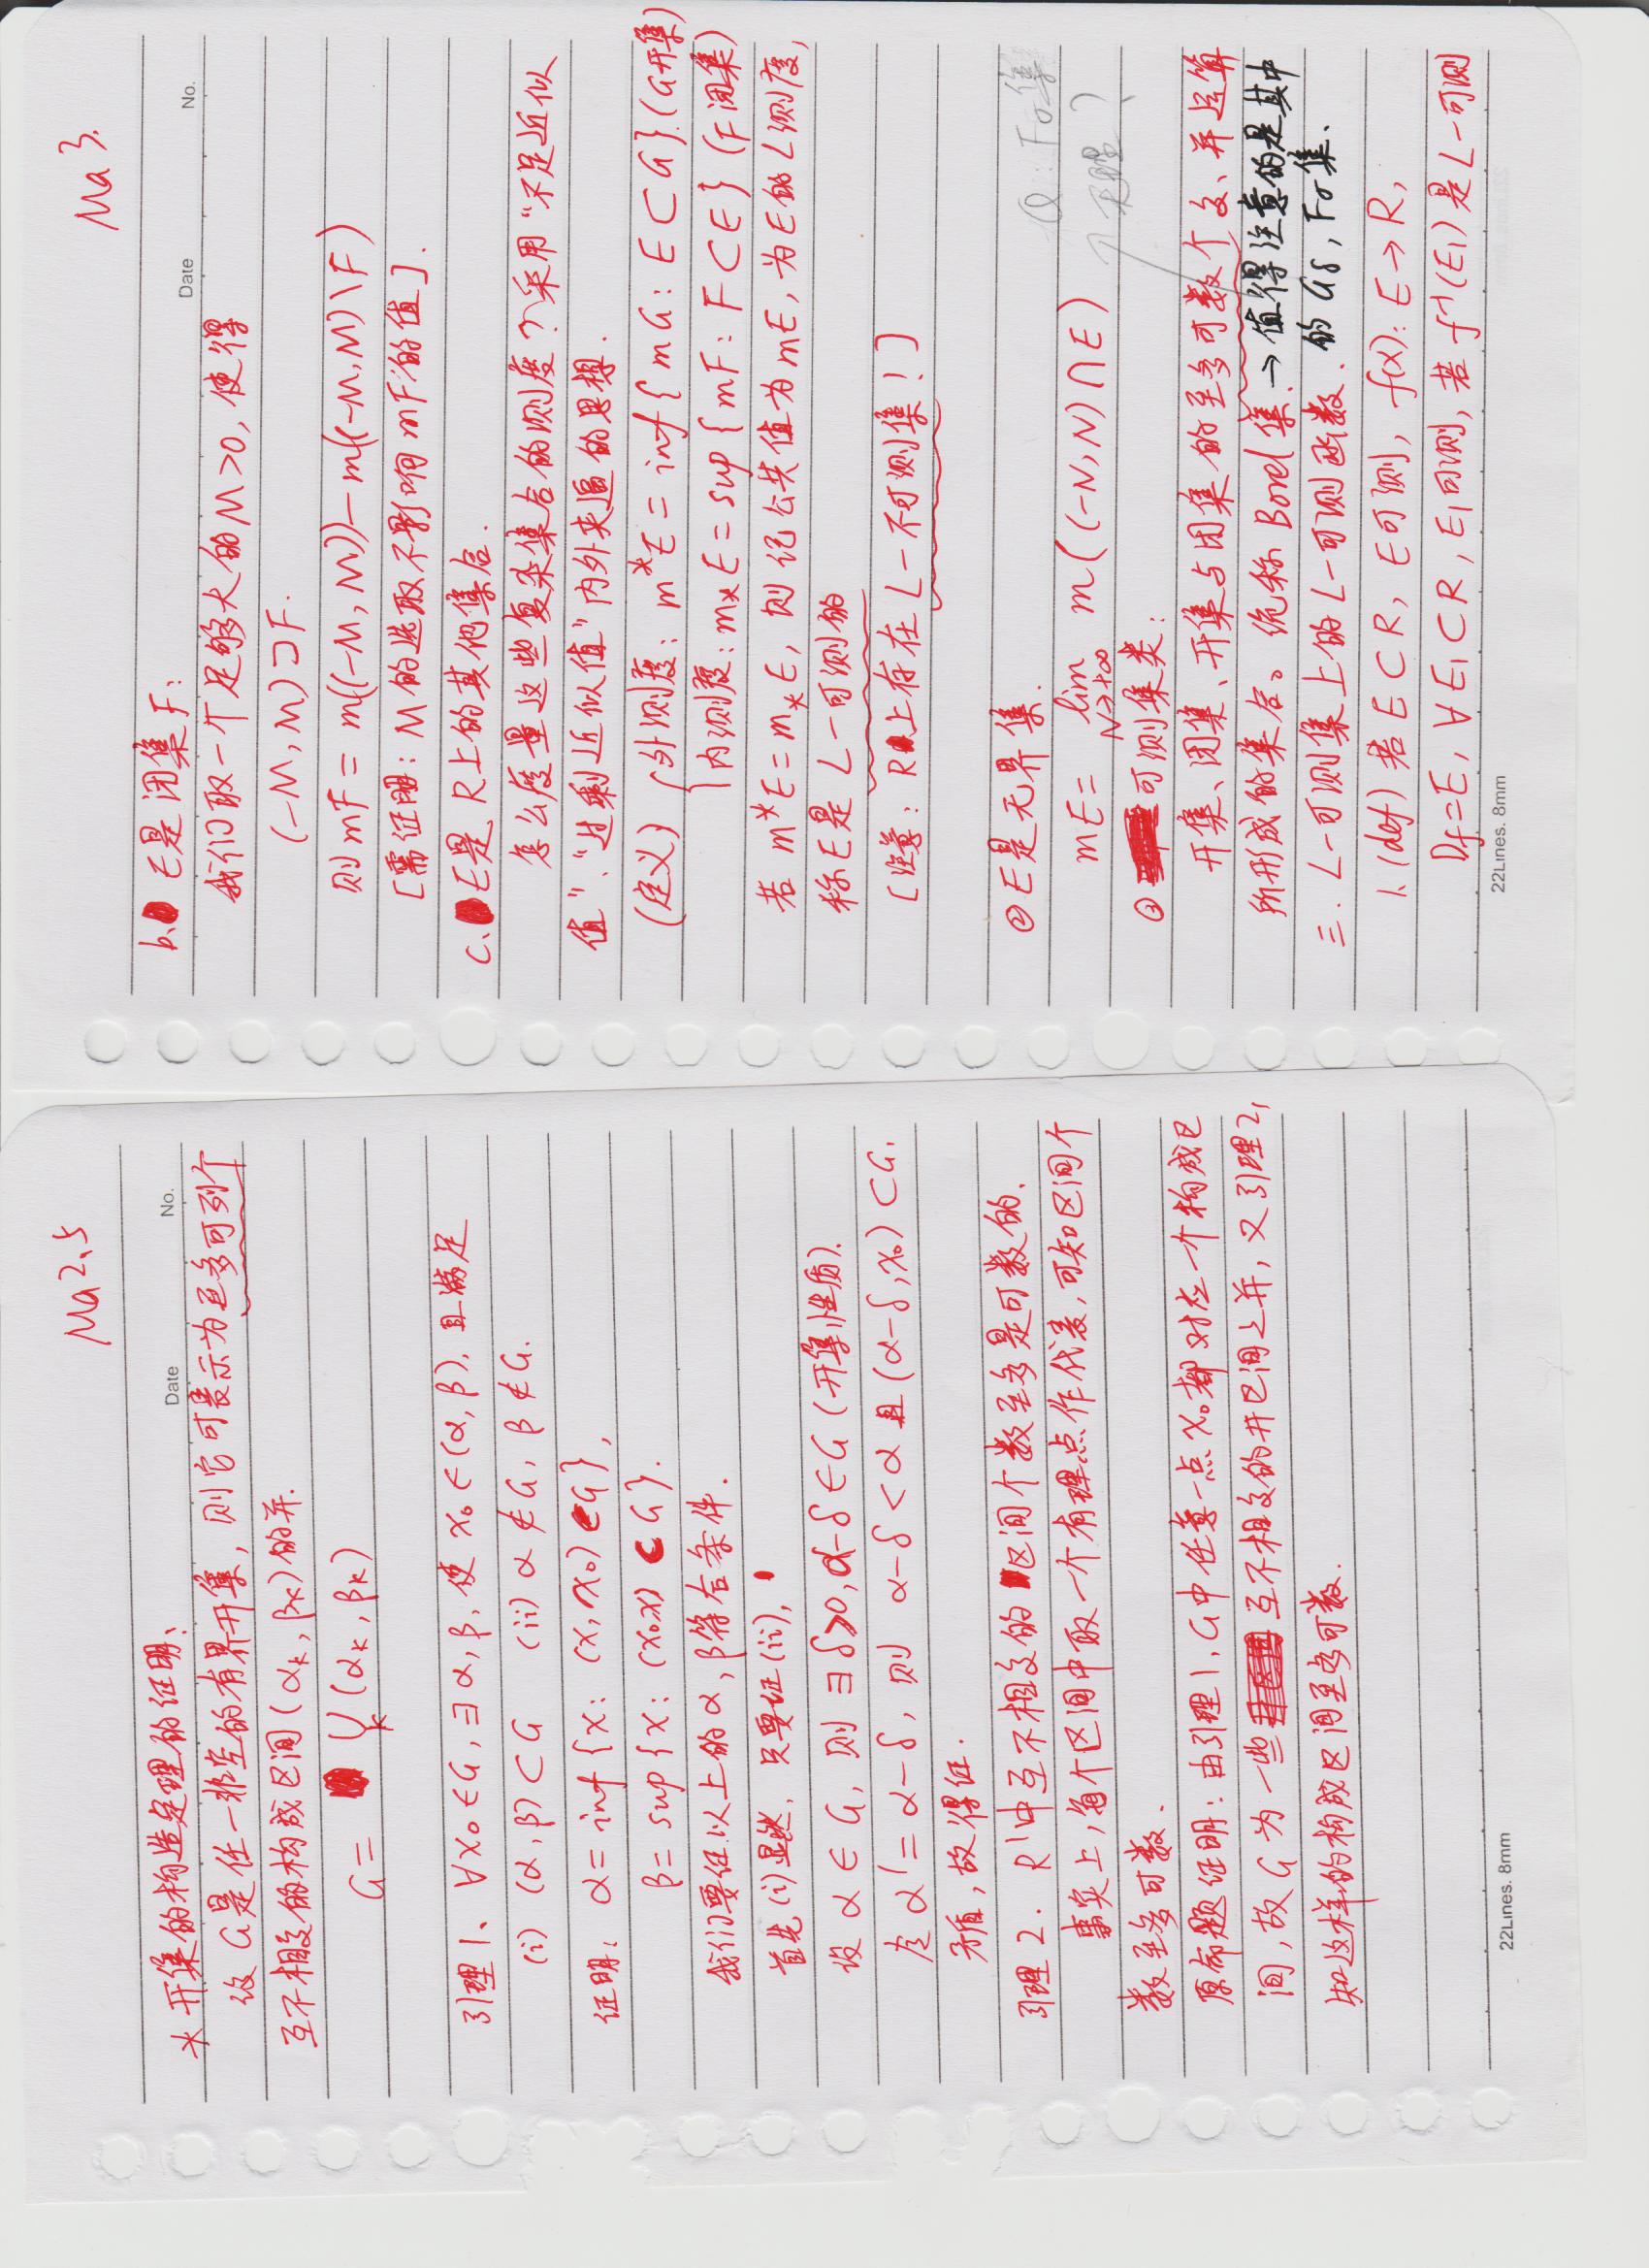 Ma2.5
Date No.
* 开集的构造定理的证明:
设 G是任一非空的有界开集, 则它可表示为至多可列个
互不相交的构成区间(αk, βk)的并.
G= ∪k (αk, βk)
引理1、∀x₀∈G, ∃α, β, 使 x₀∈(α, β), 且满足
(i) (α, β)⊂G (ii) α∉G, β∉G.
证明: α= inf{x: (x, x₀)⊂G},
β= sup{x: (x₀,x)⊂G}.
我们要证以上的α, β符合条件.
首先(i)显然, 只要证(ii),
设 α∈G, 则 ∃δ>0, α-δ∈G (开集性质).
令α'=α-δ, 则 α-δ<α 且(α-δ, x₀)⊂G.
矛盾, 故得证.
引理2. R¹中互不相交的区间个数至多是可数的.
事实上, 每个区间中取一个有理点作代表, 可知区间个
数至多可数.
原命题证明: 由引理1, G中任意一点x₀都对应一个构成区
间, 故G为一些互不相交的开区间之并, 又引理2,
知这样的构成区间至多可数.
22Lines. 8mm
Ma 3.
b. E是闭集F:
Date No.
我们取一个足够大的M>0, 使得
(-M, M)⊃F.
则mF= m((-M, M))-m((-M, M)\F)
[需证明: M的选取不影响mF的值].
c. E是R上的其他集合.
怎么度量这些复杂集合的测度? 采用“不足近似
值”、“过剩近似值”内外夹逼的思想.
(定义) { 外测度: m*E= inf{mG: E⊂G}.(G开集)
内测度: m⁎E= sup{mF: F⊂E} (F闭集)
若 m*E=m⁎E, 则记公共值为mE, 为E的L测度,
称E是L-可测的
[注意: R上存在L-不可测集!]
② E是无界集.
Q: Fσ集
mE= lim N→+∞ m((-N, N)∩E)
无理?
③ 可测集类:
开集、闭集、开集与闭集的至多可数个交、并运算
所形成的集合。统称Borel集.→值得注意的是其中
的Gδ, Fσ集.
三. L-可测集上的L-可测函数.
1. (def) 若E⊂R, E可测, f(x): E→R,
Df=E, ∀E₁⊂R, E₁可测, 若f⁻¹(E₁)是L-可测
22Lines. 8mm